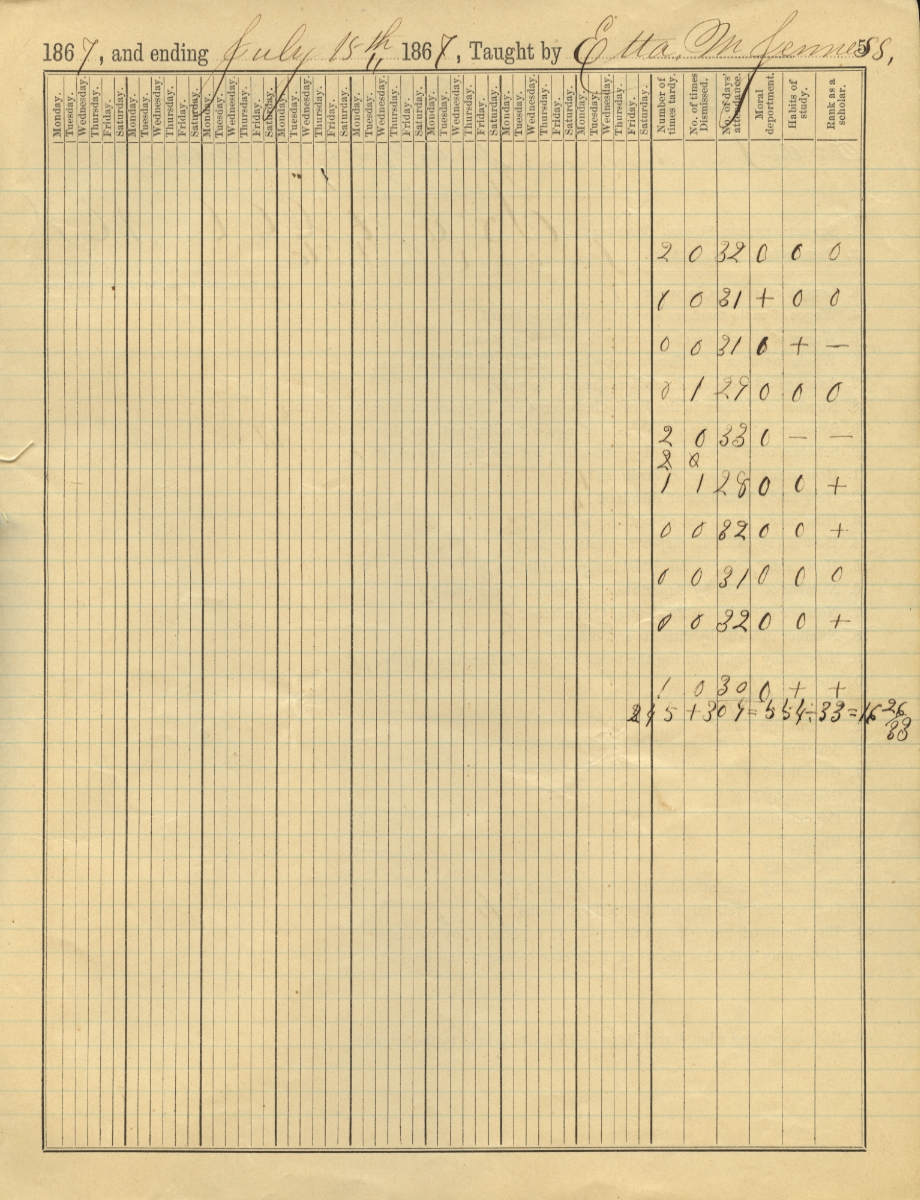 1867, and ending July 15th, 1867, Taught by Etta. M Jenness, 5
Monday. Tuesday. Wednesday. Thursday. Friday. Saturday. Monday. Tuesday. Wednesday. Thursday. Friday. Saturday. Monday. Tuesday. Wednesday. Thursday. Friday. Saturday. Monday. Tuesday. Wednesday. Thursday. Friday. Saturday. Monday. Tuesday. Wednesday. Thursday. Friday. Saturday. Monday. Tuesday. Wednesday. Thursday. Friday. Saturday. Monday. Tuesday. Wednesday. Thursday. Friday. Saturday. Monday. Tuesday. Wednesday. Thursday. Friday. Saturday. Number of times tardy. No. of times Dismissed. No. of days' attendance. Moral deportment. Habits of study. Rank as a scholar.
2 0 32 0 0 0
1 0 31 + 0 0
0 0 31 0 + —
0 1 29 0 0 0
2 0 33 0 — —
2 0
1 1 28 0 0 +
0 0 32 0 0 +
0 0 31 0 0 0
0 0 32 0 0 +
1 0 30 0 + +
245 + 309 = 554 ÷ 33 = 16 26/33